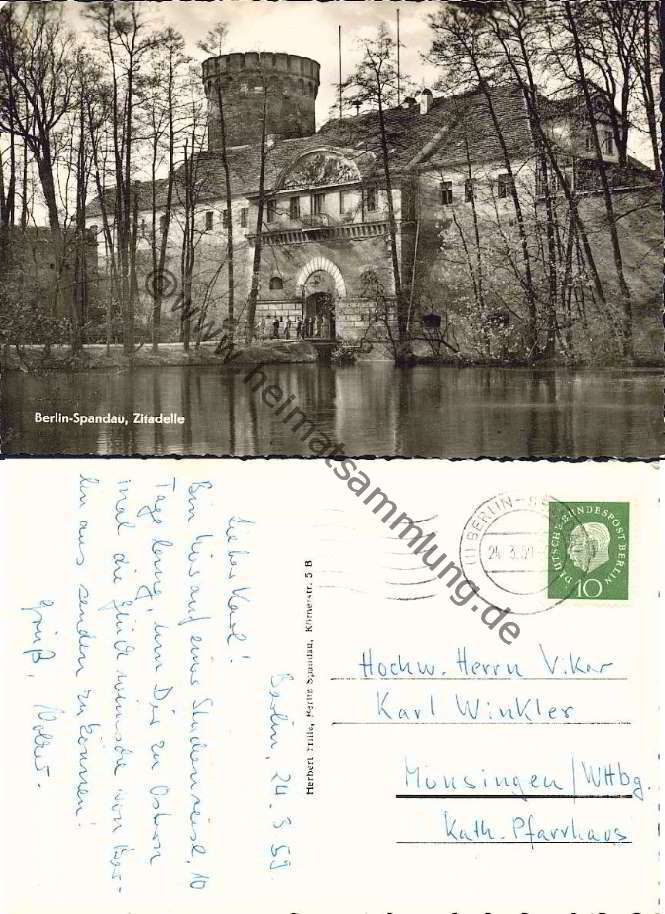 Berlin-Spandau, Zitadelle
© www.heimatsammlung.de
Berlin, 24. 3 59.
Lieber Karl!
Bin hier auf einer Studienreise, 10
Tage lang, um Dir zu Ostern
mal die Glückwünsche von Ber-
lin aus senden zu können!
Gruß,
Herbert Spandau, Körnerstr. 5 B
(1) BERLIN
24. 3. 59
DEUTSCHE BUNDESPOST BERLIN
10
Hochw. Herrn Vikar
Karl Winkler
Münsingen/Wttbg.
Kath. Pfarrhaus